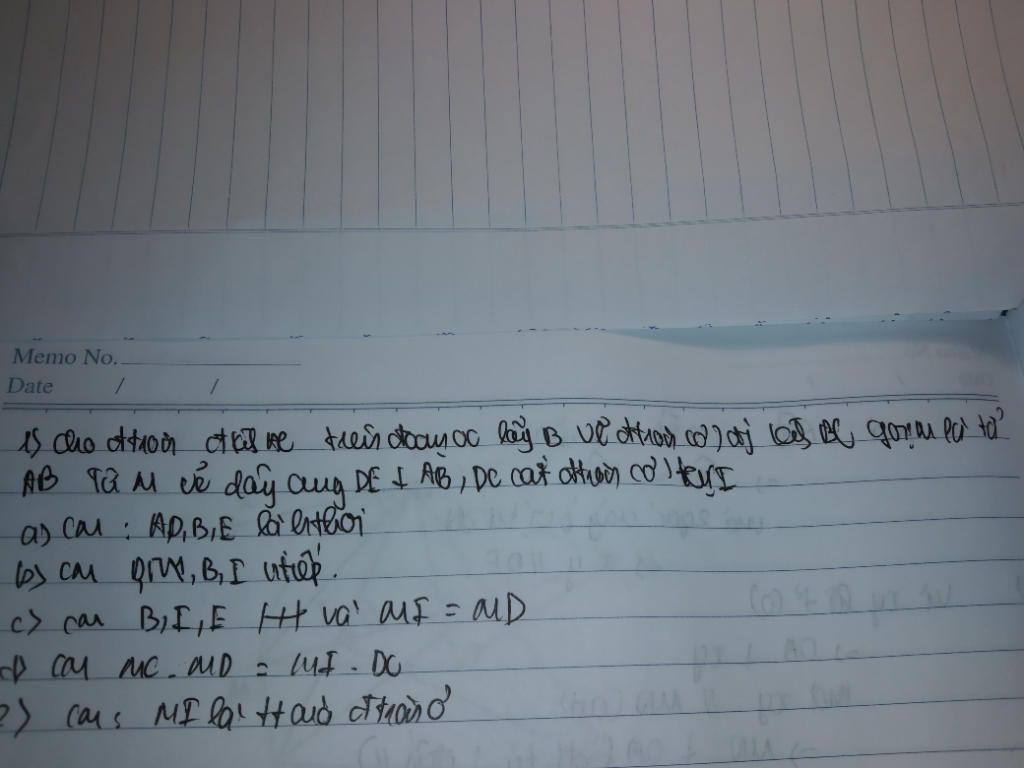 Memo No.
Date / /
1) cho đtròn đkính AC trên đoạn OC lấy B vẽ đtròn (O') đk BC gọi M là tđ
AB Từ M vẽ dây cung DE ⊥ AB, DC cắt đtròn (O') tại I
a) CM : AD, B, E là hthoi
b) CM D, M, B, I ntiếp.
c) CM B, I, E t-h và MI = MD
d) CM MC. MD = MI. DC
e) CM : MI là tt của đtròn O'